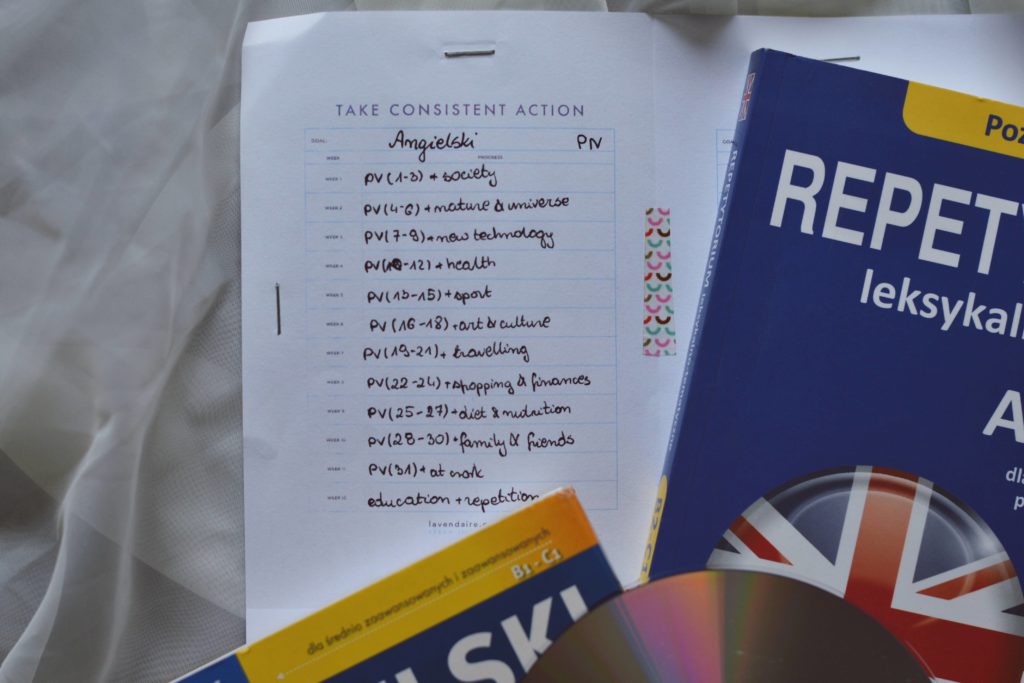 TAKE CONSISTENT ACTION
GOAL: Angielski PN
WEEK PROGRESS
WEEK 1 PV (1-3) + society
WEEK 2 PV (4-6) + nature & universe
WEEK 3 PV (7-9) + new technology
WEEK 4 PV (10-12) + health
WEEK 5 PV (13-15) + sport
WEEK 6 PV (16-18) + art & culture
WEEK 7 PV (19-21) + travelling
WEEK 8 PV (22-24) + shopping & finances
WEEK 9 PV (25-27) + diet & nutrition
WEEK 10 PV (28-30) + family & friends
WEEK 11 PV (31) + at work
WEEK 12 education + repetition
lavendaire.c
GOAL
Poz
REPETY
leksykaln
A
dla
p
REPETYTORIUM
B2-C1
dla średnio zaawansowanych i zaawansowanych
B1-C1
LSKI